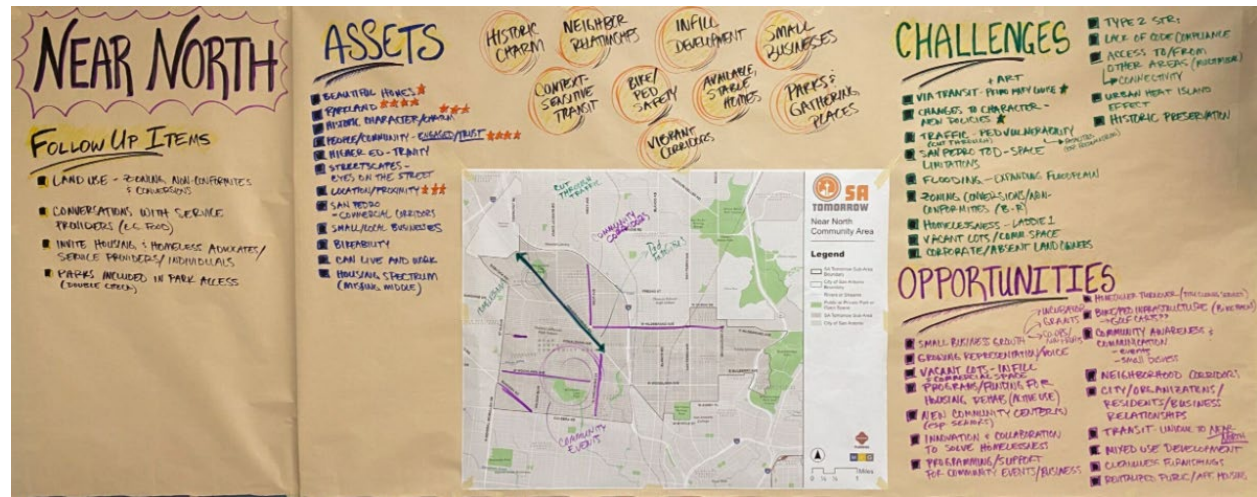 NEAR NORTH
FOLLOW UP ITEMS
LAND USE - ZONING, NON-CONFORMITES
& CONVERSIONS
CONVERSATIONS WITH SERVICE
PROVIDERS (I.E. FOOD)
INVITE HOUSING & HOMELESS ADVOCATES/
SERVICE PROVIDERS/INDIVIDUALS
PARKS INCLUDED IN PARK ACCESS
(DOUBLE CHECK)
ASSETS
BEAUTIFUL HOMES
PARKLAND
HISTORIC CHARACTER/CHARM
PEOPLE/COMMUNITY - ENGAGED/TRUST
HIGHER ED - TRINITY
STREETSCAPES -
EYES ON THE STREET
LOCATION/PROXIMITY
SAN PEDRO
- COMMERCIAL CORRIDORS
SMALL/LOCAL BUSINESSES
BIKEABILITY
CAN LIVE AND WORK
HOUSING SPECTRUM
(MISSING MIDDLE)
HISTORIC
CHARM
NEIGHBOR
RELATIONSHIPS
INFILL
DEVELOPMENT
SMALL
BUSINESSES
CONTEXT-
SENSITIVE
TRANSIT
BIKE/
PED
SAFETY
AVAILABLE,
STABLE
HOMES
PARKS &
GATHERING
PLACES
VIBRANT
CORRIDORS
CUT THROUGH
TRAFFIC
COMMUNITY
EVENTS
SA
TOMORROW
Near North
Community Area
Legend
SA Tomorrow Sub-Area
Boundary
City of San Antonio
Boundary
Rivers or Streams
Public or Private Park or
Open Space
SA Tomorrow Sub-Area
City of San Antonio
Miles
CHALLENGES
+ ART
VIA TRANSIT -
CHANGES TO CHARACTER -
NEW POLICIES
TRAFFIC - PED VULNERABILITY
(CUT THROUGH)
SAN PEDRO TOD - SPACE
LIMITATIONS
FLOODING - EXPANDING FLOODPLAIN
ZONING CONVERSIONS/NON-
CONFORMITIES
HOMELESSNESS -
VACANT LOTS/COMM SPACE
CORPORATE/ABSENT LAND OWNERS
TYPE 2 STRS
LACK OF CODE COMPLIANCE
ACCESS TO/FROM
OTHER AREAS (MULTIMODAL)
CONNECTIVITY
URBAN HEAT ISLAND
EFFECT
HISTORIC PRESERVATION
OPPORTUNITIES
INCUBATOR
GRANTS
SMALL BUSINESS GROWTH
GROWING REPRESENTATION/VOICE
VACANT LOTS - INFILL
& COMMERCIAL SPACE
PROGRAMS/FUNDING FOR
HOUSING REHAB (ACTIVE USE)
NEW COMMUNITY CENTER(S)
(ESP SENIORS)
INNOVATION & COLLABORATION
TO SOLVE HOMELESSNESS
PROGRAMMING/SUPPORT
FOR COMMUNITY EVENTS/BUSINESS
BIKE/PED INFRASTRUCTURE
→ GOLF CARTS??
COMMUNITY AWARENESS &
COMMUNICATION
- EVENTS
NEIGHBORHOOD CORRIDORS
CITY/ORGANIZATIONS/
RESIDENTS/BUSINESS
RELATIONSHIPS
TRANSIT - UNIQUE TO NEAR
NORTH
MIXED USE DEVELOPMENT
REVITALIZED PUBLIC/AFF. HOUSING